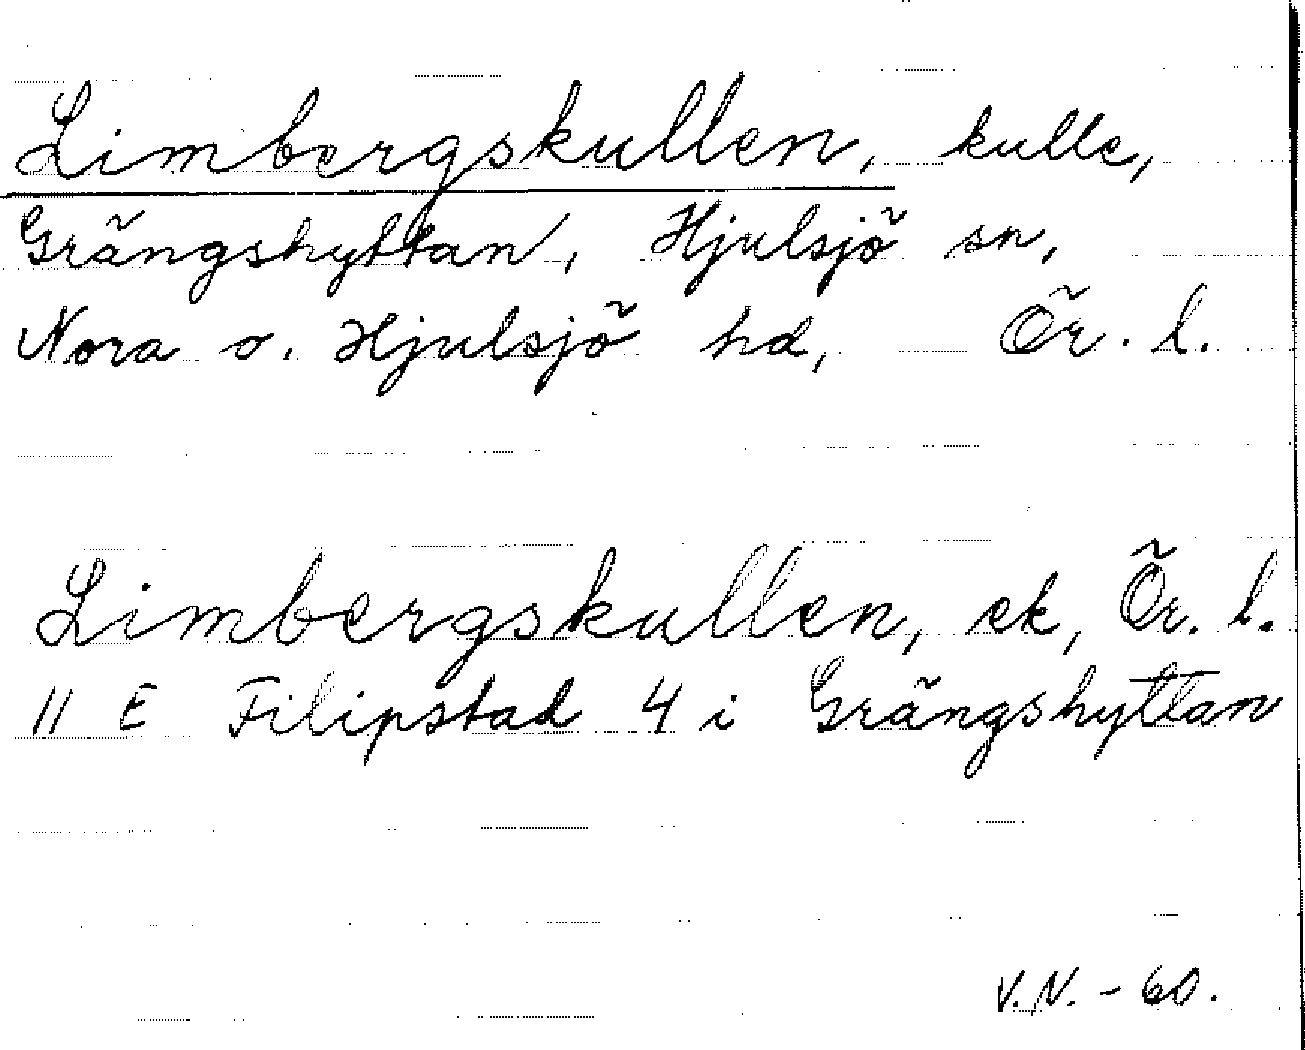 Limbergskullen, kulle,
Grängshyttan, Hjulsjö sn,
Nora o. Hjulsjö hd, Ör. l.
Limbergskullen, ek, Ör. l.
11 E Filipstad 4 i Grängshyttan
V.N. - 60.